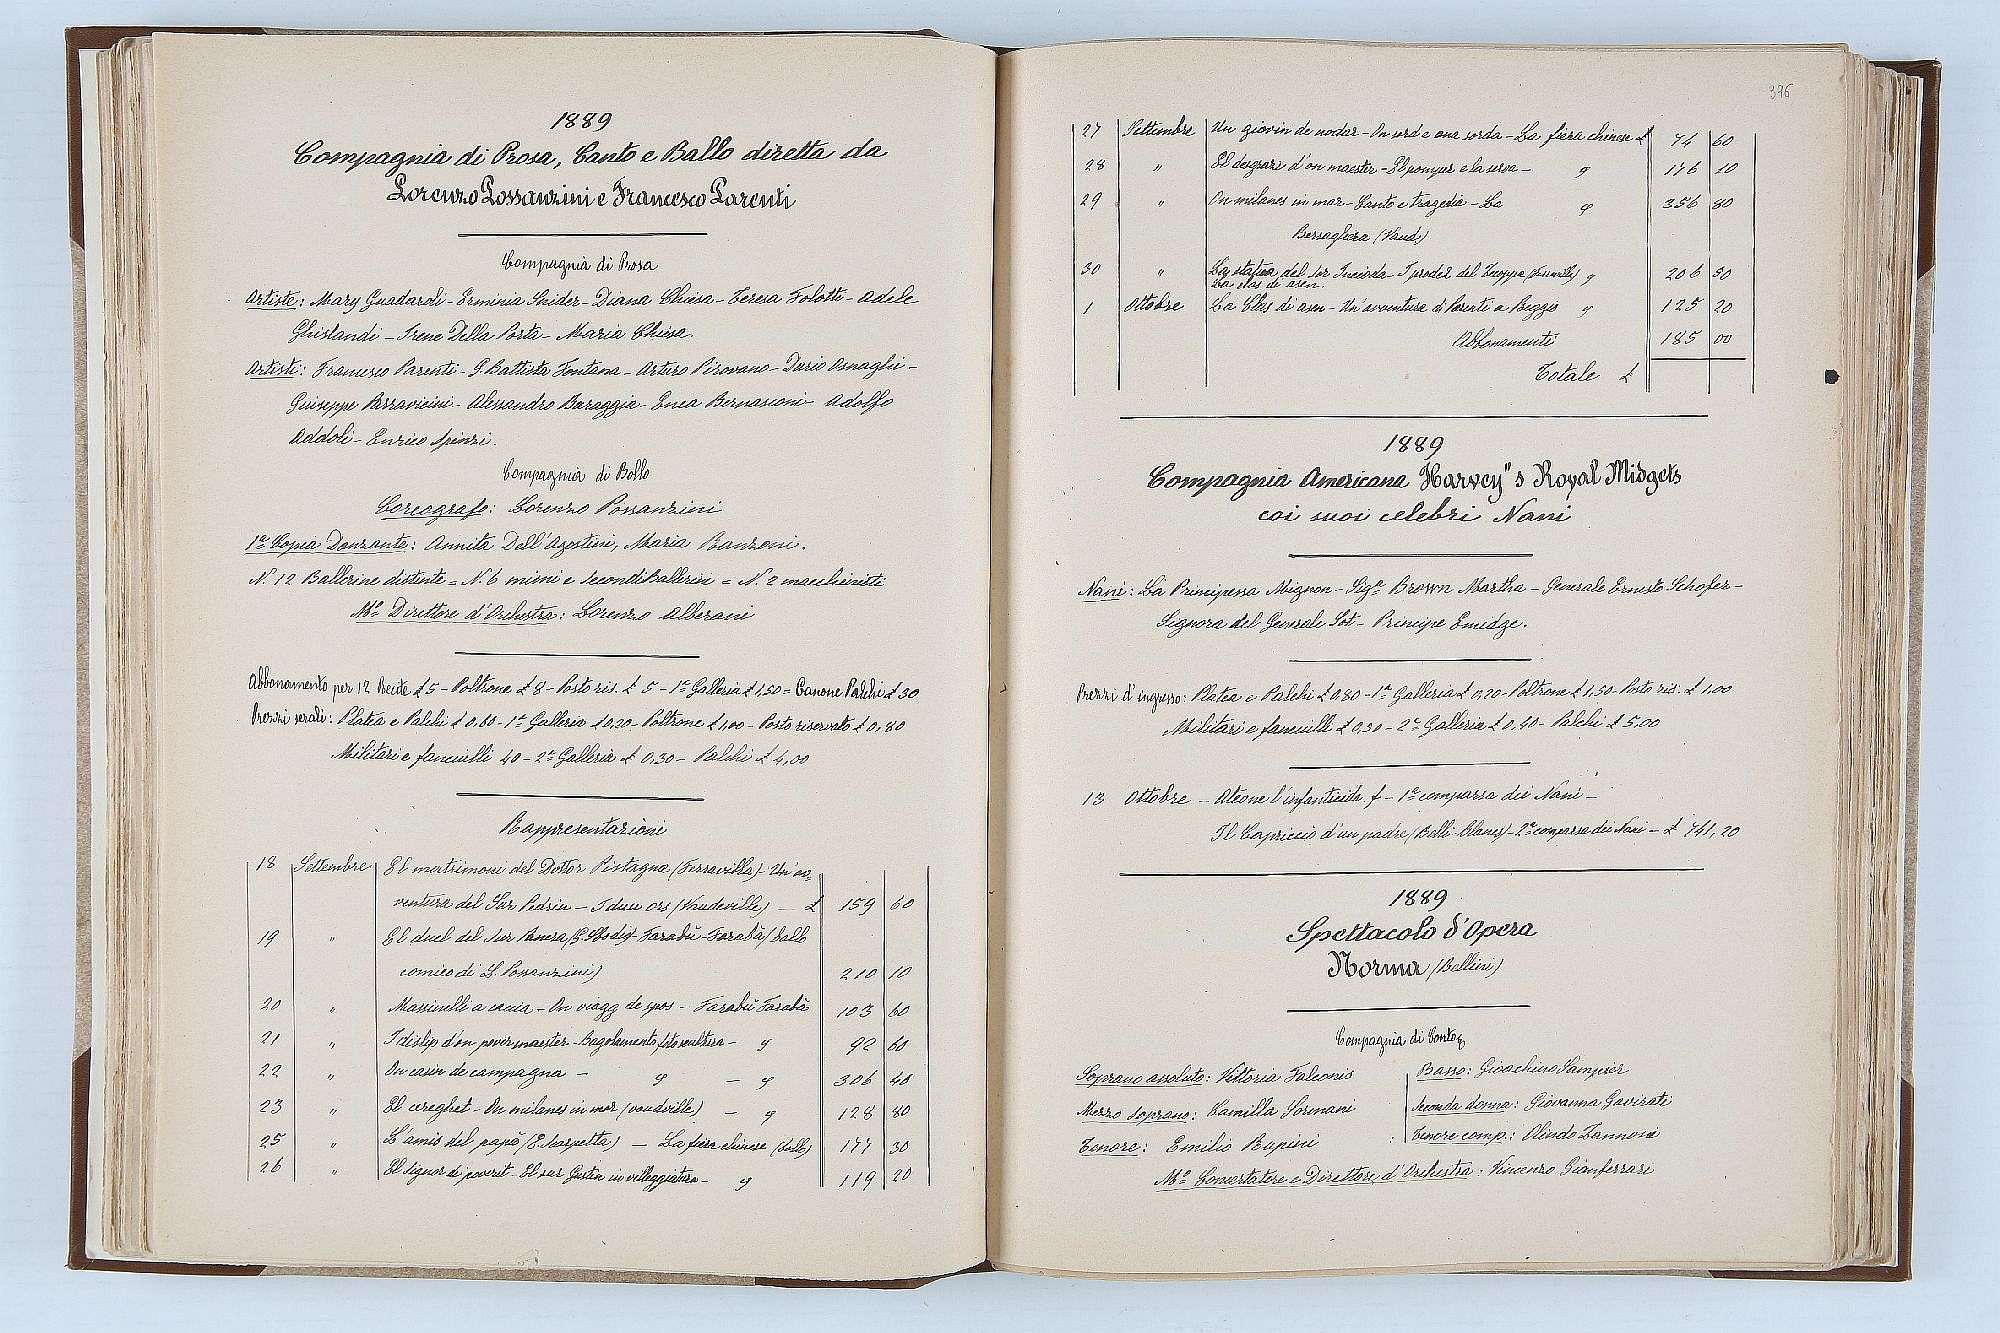 1889
Compagnia di Prosa, Canto e Ballo diretta da
Lorenzo Possanzini e Francesco Parenti
Compagnia di Prosa
Artiste: Mary Guadaroli - Erminia Snider - Diana Chiesa - Teresa Folotti - Adele
Ghislandi - Irene Della Porta - Maria Chiesa.
Artisti: Francesco Parenti - G. Battista Fontana - Arturo Pirovano - Dario Osnaghi -
Giuseppe Passavicini - Alessandro Baraggia - Enea Bernasconi Adolfo
Addoli - Enrico Spinzi.
Compagnia di Ballo
Coreografo: Lorenzo Possanzini
1ª Copia Danzante: Annita Dall'Agostini, Maria Banzoni.
N. 12 Ballerine distinte = N. 6 mimi e secondi Ballerini = N. 2 macchinisti
Mº Direttore d'Orchestra: Lorenzo Alberani
Abbonamento per 12 Recite £ 5 - Poltrone £ 8 - Posto ris. £ 5 - 1ª Galleria £ 1,50 = Canone Palchi £ 30
Prezzi serali: Platea e Palchi £ 0,60 - 1ª Galleria £ 0,20 - Poltrone £ 1,00 - Posto riservato £ 0,80
Militari e fanciulli 40 - 2ª Galleria £ 0,30 - Palchi £ 4,00
Rappresentazioni
18 Settembre El matrimoni del Dottor Pistagna (Ferravilla) - Un'av-
ventura del Sur Pedrin - I duu ors (Vaudeville) - £ 159 60
19 " El duel del sur Panera (E. Giraud) - Farabù - Farabà (Ballo
comico di L. Possanzini) 210 10
20 " Massinelli a caccia - On viagg de spos - Farabù Farabà 103 60
21 " I dislip d'on pover maester - Bagolamento fotoscultura - " 92 60
22 " On casin de campagna - " - " 306 40
23 " El cereghet - On milanes in mar (vaudeville) - " 128 80
25 " L'amis del papà (E. Scarpetta) - La fiera chinese (ballo) 177 30
26 " El Signor di poverit - El sur Gustin in villeggiatura - " 119 20
376
27 Settembre Un giovin de nodar - On ord e ona sorda - La fiera chinese £ 74 60
28 " El desgrazi d'on maester - El pompier e la serva - " 176 10
29 " On milanes in mar - Canto e tragedia - La " 356 80
Bersagliera (Vaud.)
30 " La statua del sur Incioda - I prodez del Zuoppa (Vaudeville) " 206 50
La clas di asen.
1 Ottobre La Clas di asen - Un'avventura di Parenti a Reggio " 125 20
Abbonamenti 185 00
Totale £
1889
Compagnia Americana Harvey"s Royal Midgets
coi suoi celebri Nani
Nani: La Principessa Mignon - Sigª Brown Martha - Generale Ernesto Schofer -
Signora del Generale Tot - Principe Emidge.
Prezzi d'ingresso: Platea e Palchi £ 0,80 - 1ª Galleria £ 0,20 - Poltrone £ 1,50 - Posto ris. £ 1,00
Militari e fanciulli £ 0,50 - 2ª Galleria £ 0,40 - Palchi £ 5,00
13 Ottobre - Alcone l'infanticida f - 1ª comparsa dei Nani -
Il Capriccio d'un padre (Belli Blanes) - 2ª comparsa dei Nani - £ 741,20
1889
Spettacolo d'Opera
Norma (Bellini)
Compagnia di Canto
Soprano assoluto: Vittoria Falconis
Mezzo Soprano: Camilla Sormani
Tenore: Emilio Rupini
Basso: Gioachino Sampier
Seconda donna: Giovanna Gavirati
Tenore comp.: Olindo Zannoni
Mº Concertatore e Direttore d'Orchestra: Vincenzo Gianferrari